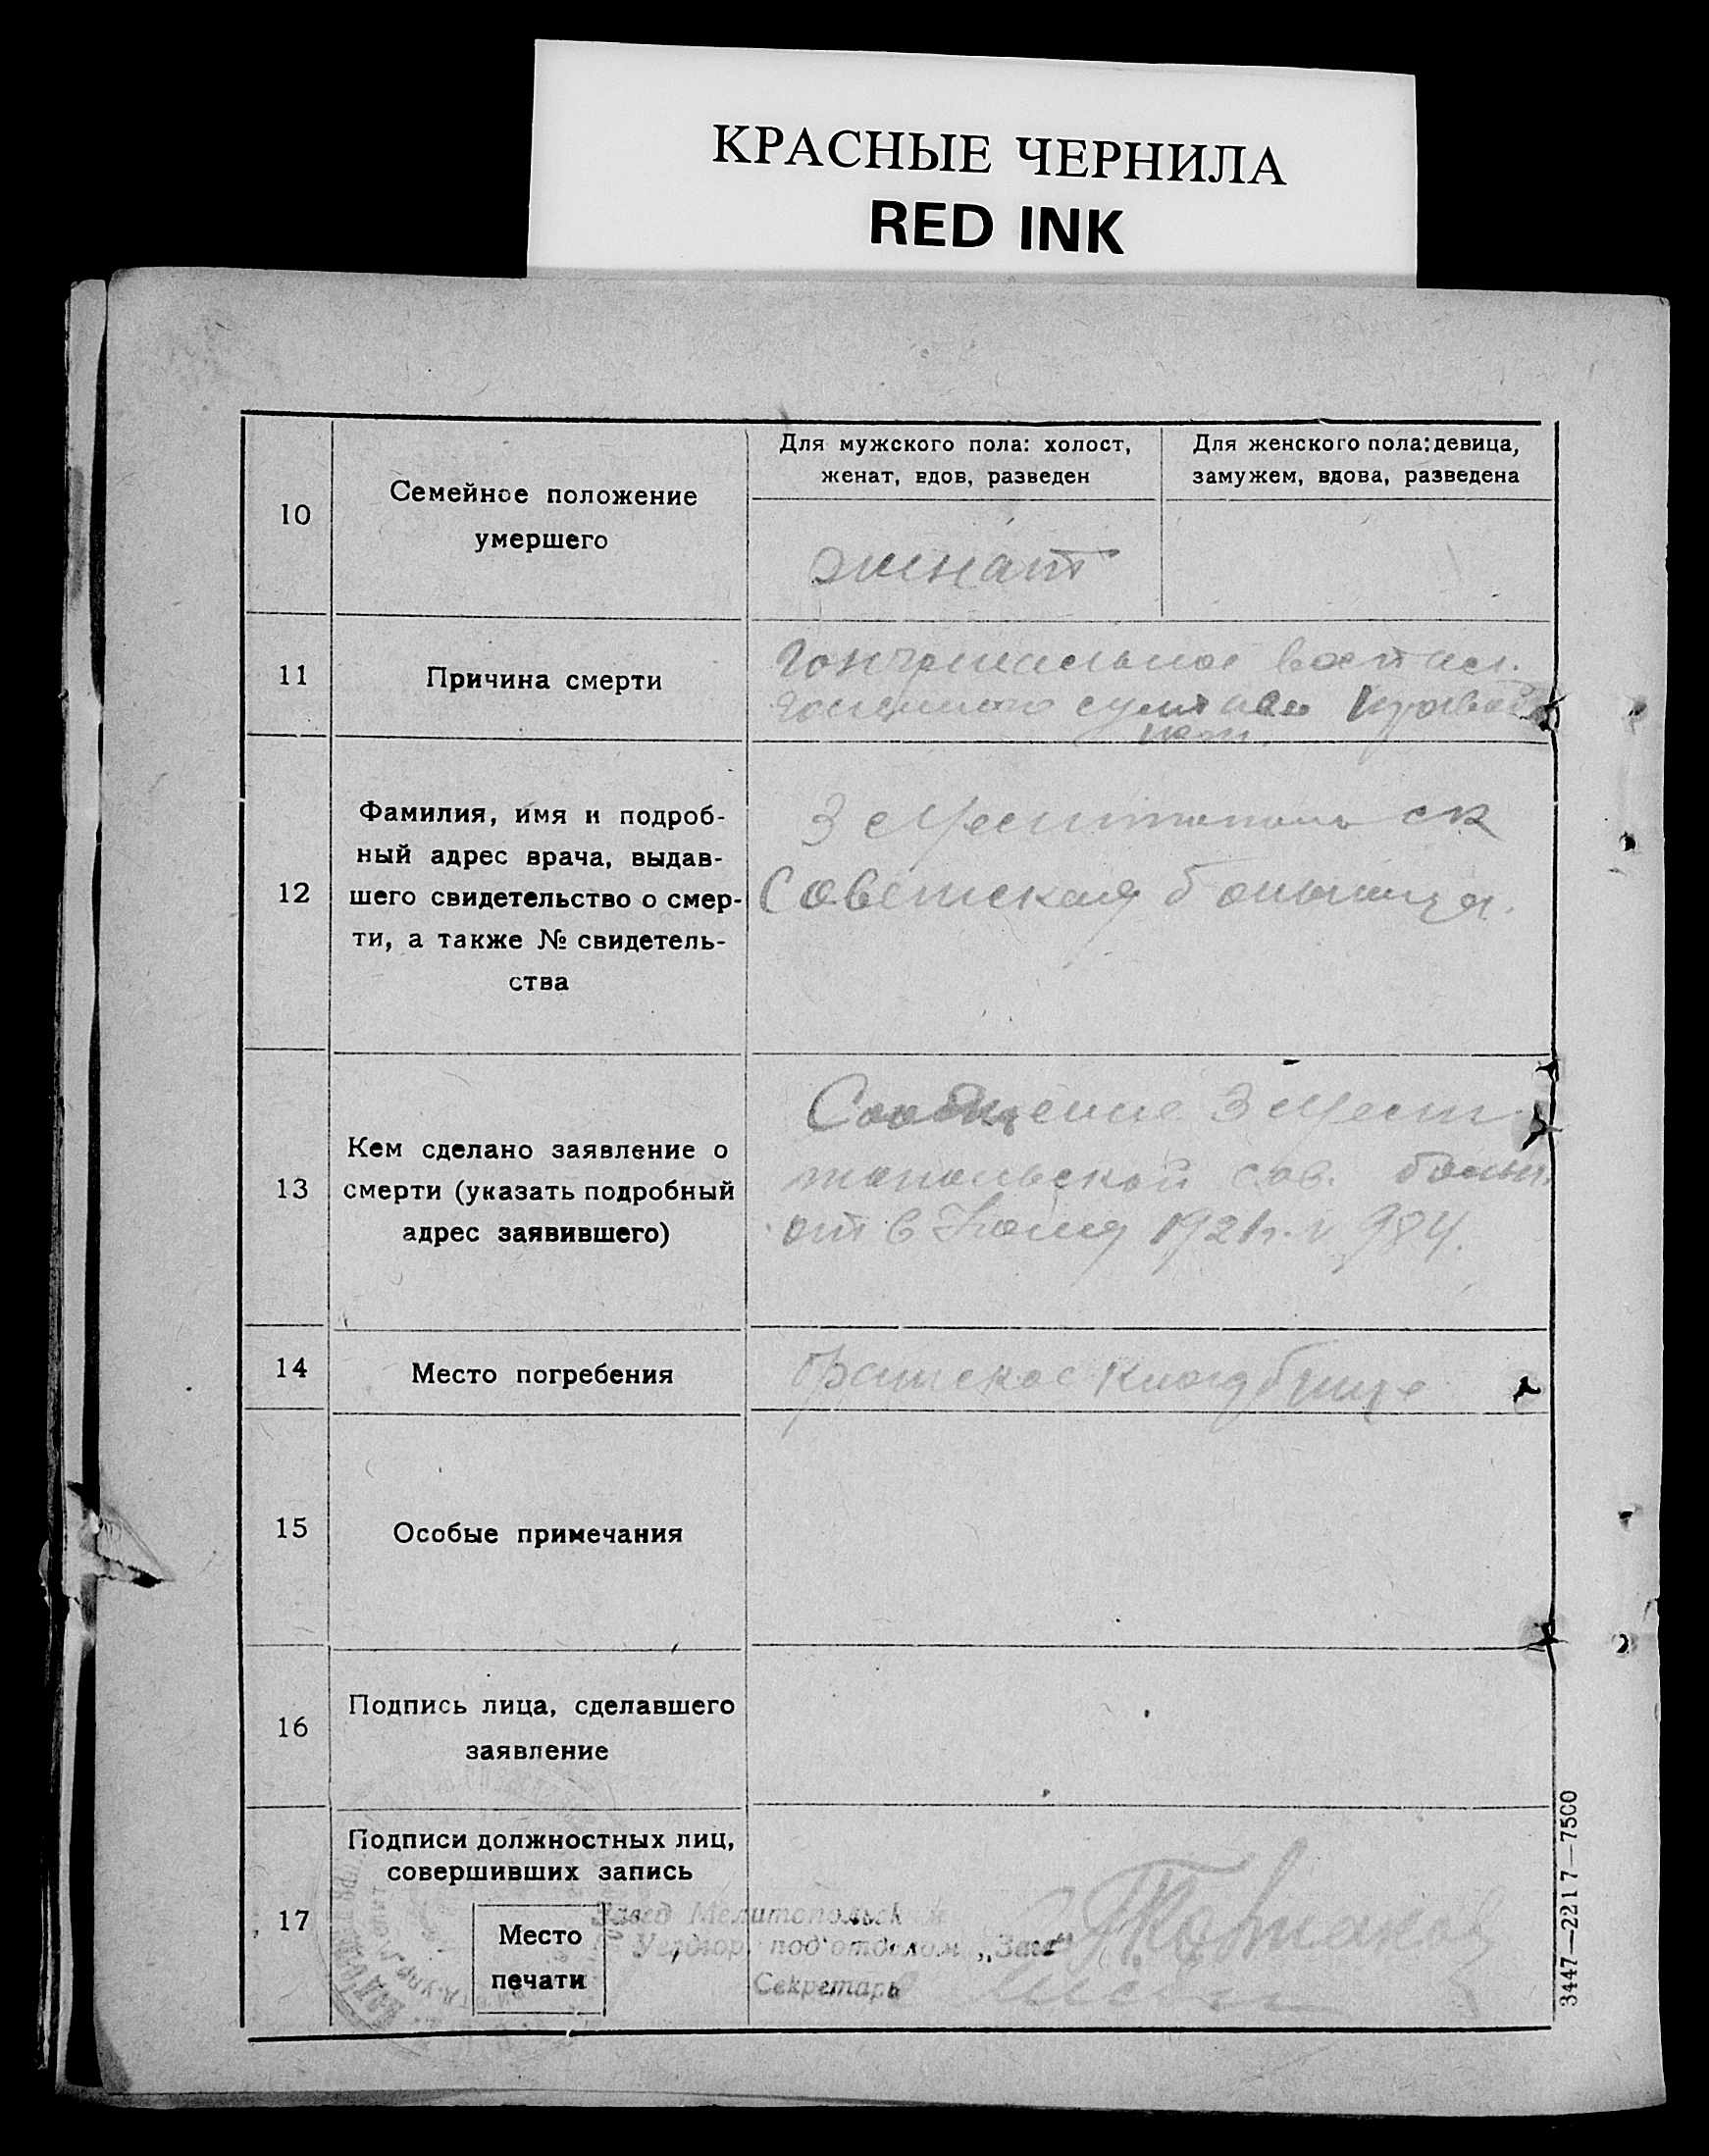 КРАСНЫЕ ЧЕРНИЛА
RED INK
10
Семейное положение
умершего
Для мужского пола: холост,
женат, вдов, разведен
Для женского пола: девица,
замужем, вдова, разведена
женат
11
Причина смерти
12
Фамилия, имя и подроб-
ный адрес врача, выдав-
шего свидетельство о смер-
ти, а также № свидетель-
ства
3 Мелитопольск
Советская больница.
13
Кем сделано заявление о
смерти (указать подробный
адрес заявившего)
Сообщение 3 Мели
топольской сов. больн.
от 6 Июня 1921 г. № 984.
14
Место погребения
Братское кладбище
15
Особые примечания
16
Подпись лица, сделавшего
заявление
17
Подписи должностных лиц,
совершивших запись
Место
печати
Завед Мелитопольск
Уездгор. под'отделом „Загс"
Секретарь
3447—2217—7500